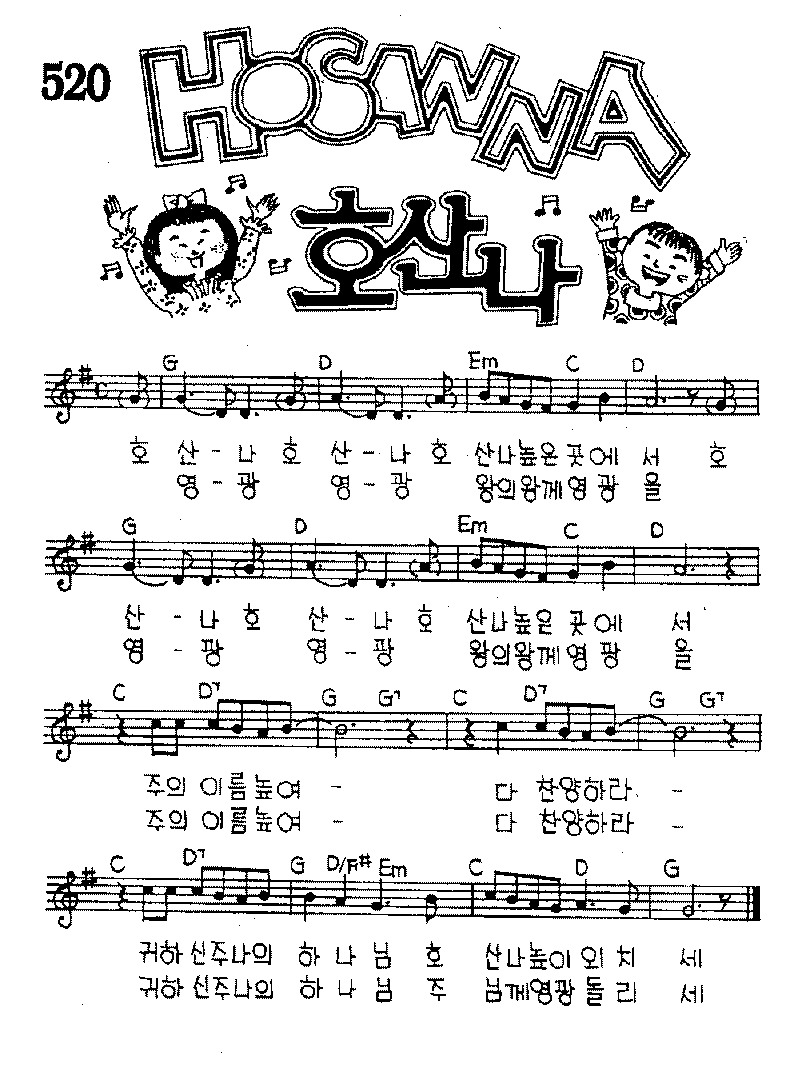 520
HOSANNA
호산나
G D Em C D
호 산 - 나 호 산 - 나 호 산나높은 곳에 서 호
영 - 광 영 - 광 왕의왕께 영 광 을
G D Em C D
산 - 나 호 산 - 나 호 산나높은 곳에 서
영 - 광 영 - 광 왕의왕께 영 광 을
C D7 G G7 C D7 G G7
주의 이름높여 - 다 찬양하라 -
주의 이름높여 - 다 찬양하라 -
C D7 G D/F# Em C D G
귀하 신주나의 하 나 님 호 산나높이 외 치 세
귀하 신주나의 하 나 님 주 님께영광 돌 리 세